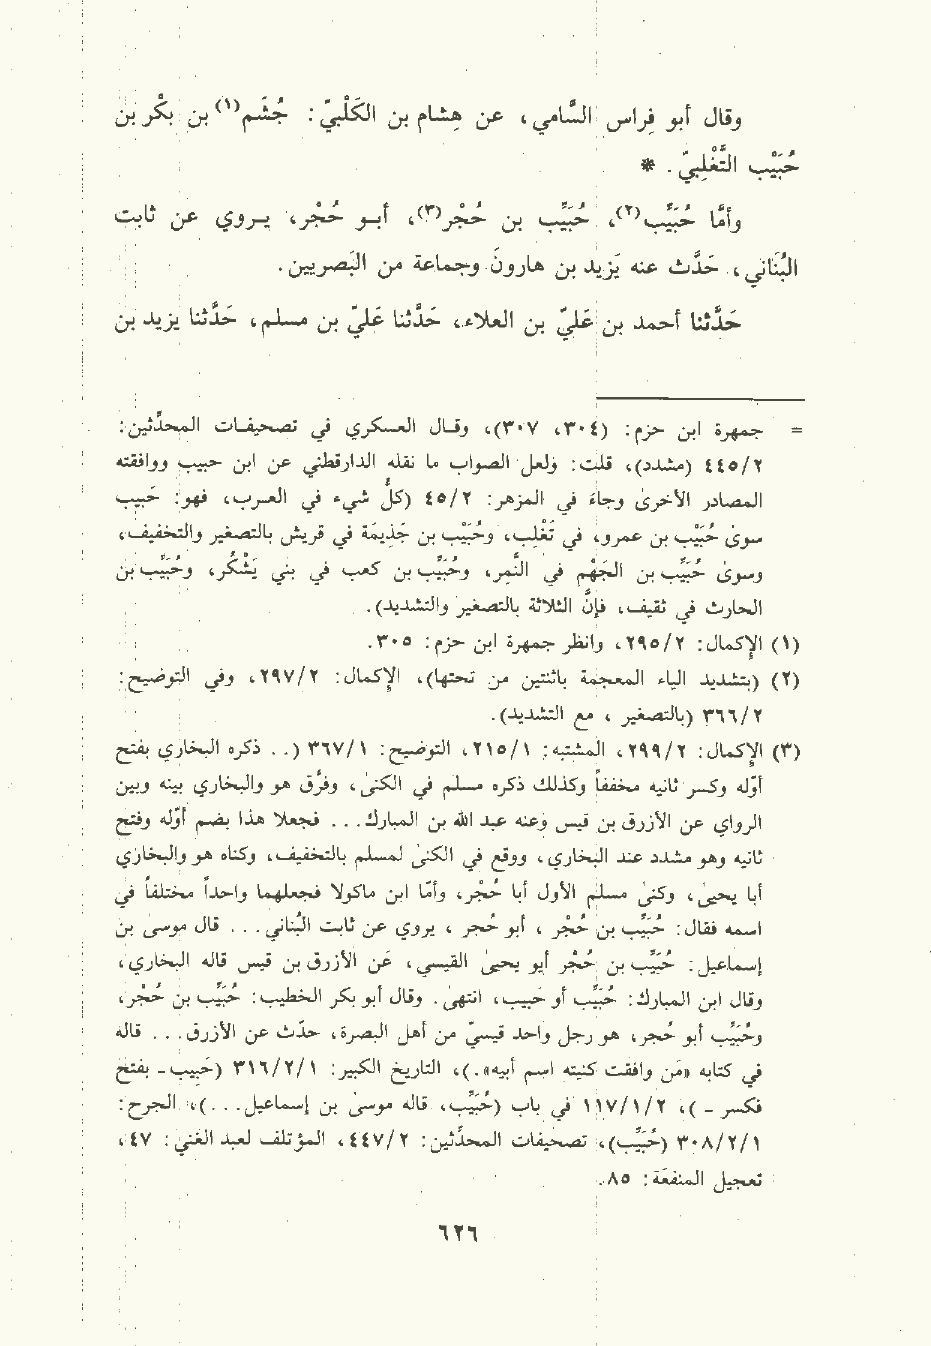 وقال أبو فِراس السَّامي، عن هِشام بن الكَلْبيّ: جُشَم(١) بن بكْر بن
حُبَيْب التَّغْلِبيّ. *
وأمَّا حُبَيِّب(٢)، حُبَيِّب بن حُجْر(٣)، أبو حُجْر، يروي عن ثابت
البُنَاني، حَدَّث عنه يَزيد بن هارونَ وجماعة من البَصريين.
حَدَّثنا أحمد بن عَليّ بن العلاء، حَدَّثنا عَليّ بن مسلم، حَدَّثنا يزيد بن
= جمهرة ابن حزم: (٣٠٤، ٣٠٧)، وقال العسكري في تصحيفات المحدِّثين:
٤٤٥/٢ (مشدد)، قلت: ولعل الصواب ما نقله الدارقطني عن ابن حبيب ووافقته
المصادر الأخرىٰ وجاءَ في المزهر: ٤٥/٢ (كلُّ شيء في العرب، فهو: حَبيب
سوىٰ حُبَيْب بن عمرو، في تَغْلِب، وحُبَيْب بن جَذِيمَة في قريش بالتصغير والتخفيف،
وسوىٰ حُبَيِّب بن الجَهْم في النَّمِر، وحُبَيِّب بن كعب في بني يَشْكُر، وحُبَيِّب بن
الحارث في ثقيف، فإنَّ الثلاثة بالتصغير والتشديد).
(١) الإكمال: ٢٩٥/٢، وانظر جمهرة ابن حزم: ٣٠٥.
(٢) (بتشديد الياء المعجمة باثنتين من تحتها)، الإكمال: ٢٩٧/٢، وفي التوضيح:
٣٦٦/٢ (بالتصغير، مع التشديد).
(٣) الإكمال: ٢٩٩/٢، المشتبه: ٢١٥/١، التوضيح: ٣٦٧/١ (.. ذكره البخاري بفتح
أوّله وكسر ثانيه مخففاً وكذلك ذكره مسلم في الكنىٰ، وفرَّق هو والبخاري بينه وبين
الرواي عن الأزرق بن قيس وعنه عبد الله بن المبارك... فجعلا هذا بضم أوَّله وفتح
ثانيه وهو مشدد عند البخاري، ووقع في الكنىٰ لمسلم بالتخفيف، وكناه هو والبخاري
أبا يحيىٰ، وكنىٰ مسلم الأول أبا حُجْر، وأمَّا ابن ماكولا فجعلهما واحداً مختلفاً في
اسمه فقال: حُبَيِّب بن حُجْر، أبو حُجر، يروي عن ثابت البُناني... قال موسىٰ بن
إسماعيل: حُبَيِّب بن حُجْر أبو يحيىٰ القيسي، عَن الأزرق بن قيس قاله البخاري،
وقال ابن المبارك: حُبَيِّب أو حَبيب، انتهىٰ. وقال أبو بكر الخطيب: حُبَيِّب بن حُجْر،
وحُبَيِّب أبو حُجر، هو رجل واحد قيسيّ من أهل البصرة، حدَّث عن الأزرق... قاله
في كتابه «مَن وافقت كنيته اسم أبيه».)، التاريخ الكبير: ٣١٦/٢/١ (حَبِيب - بفتح
فكسر - )، ١١٧/١/٢ في باب (حُبَيِّب، قاله موسىٰ بن إسماعيل...)، الجرح:
٣٠٨/٢/١ (حُبَيِّب)، تصحيفات المحدِّثين: ٤٤٧/٢، المؤتلف لعبد الغني: ٤٧،
تعجيل المنفعة: ٨٥.
٦٢٦